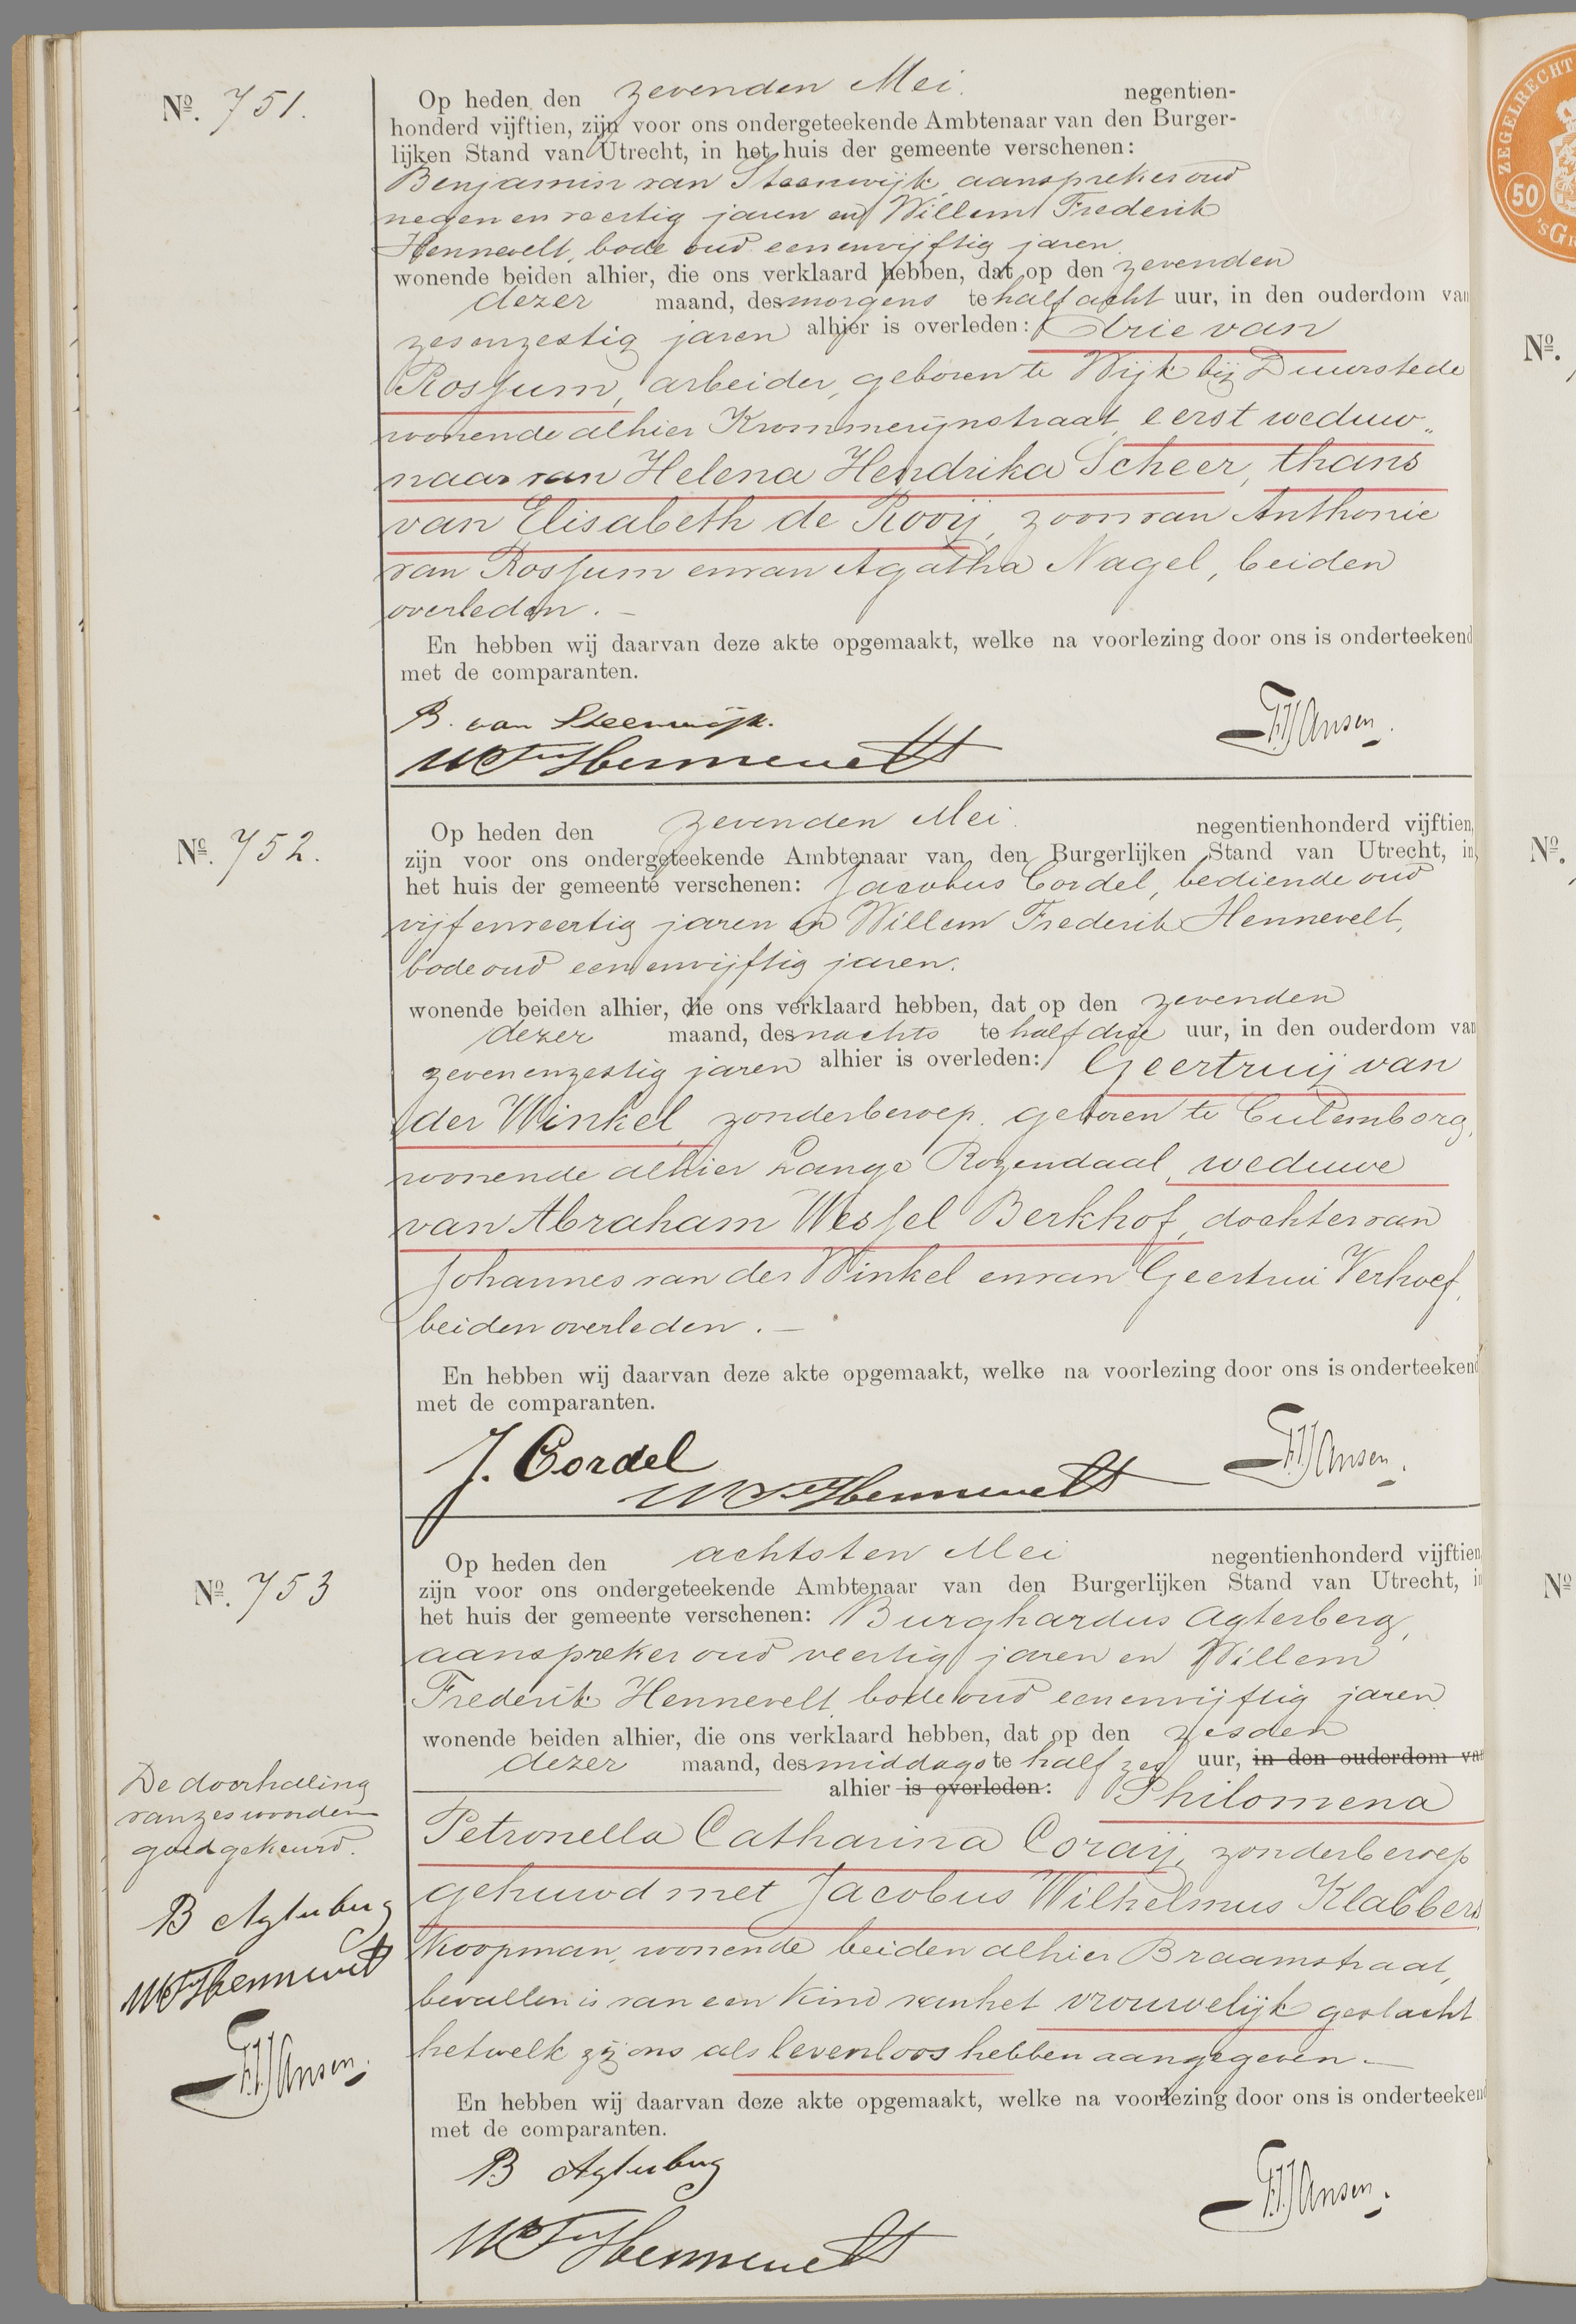 Nº. 751.
Op heden den zevenden Mei. negentien-
honderd vijftien, zijn voor ons ondergeteekende Ambtenaar van den Burger-
lijken Stand van Utrecht, in het huis der gemeente verschenen:
Benjamin van Steenwijk, aanspreker oud
negen en veertig jaren en Willem Frederik
Hennevelt, bode oud eenenvijftig jaren.
wonende beiden alhier, die ons verklaard hebben, dat op den zevenden
dezer maand, des morgens te half acht uur, in den ouderdom van
zesenzestig jaren alhier is overleden: Arie van
Rossum, arbeider, geboren te Wijk bij Duurstede
wonende alhier Krommerijnstraat, eerst weduw„
naar van Helena Hendrika Scheer, thans
van Elisabeth de Rooij, zoon van Anthonie
van Rossum en van Agatha Nagel, beiden
overleden. –
En hebben wij daarvan deze akte opgemaakt, welke na voorlezing door ons is onderteekend
met de comparanten.
B. van Steenwijk.
WF Hennevelt
F.J. Jansen.
Nº. 752.
Op heden den zevenden Mei. negentienhonderd vijftien,
zijn voor ons ondergeteekende Ambtenaar van den Burgerlijken Stand van Utrecht, in
het huis der gemeente verschenen: Jacobus Cordel, bediende oud
vijfenveertig jaren en Willem Frederik Hennevelt,
bode oud eenenvijftig jaren.
wonende beiden alhier, die ons verklaard hebben, dat op den zevenden
dezer maand, des nachts te half drie uur, in den ouderdom van
zevenenzestig jaren alhier is overleden: Geertruij van
der Winkel, zonder beroep. geboren te Culemborg,
wonende alhier Lange Rozendaal, weduwe
van Abraham Wessel Berkhof, dochter van
Johannes van der Winkel en van Geertrui Verhoef,
beiden overleden. –
En hebben wij daarvan deze akte opgemaakt, welke na voorlezing door ons is onderteekend
met de comparanten.
J. Cordel
WF Hennevelt
F.J. Jansen.
Nº. 753
Op heden den achtsten Mei negentienhonderd vijftien,
zijn voor ons ondergeteekende Ambtenaar van den Burgerlijken Stand van Utrecht, in
het huis der gemeente verschenen: Burghardus Agterberg,
aanspreker oud veertig jaren en Willem
Frederik Hennevelt, bode oud eenenvijftig jaren
wonende beiden alhier, die ons verklaard hebben, dat op den zesden
dezer maand, des middags te half zes uur, in den ouderdom van
alhier is overleden: Philomena
Petronella Catharina Coraij, zonder beroep
gehuwd met Jacobus Wilhelmus Klabbers,
koopman, wonende beiden alhier Braamstraat,
bevallen is van een kind van het vrouwelijk geslacht
hetwelk zij ons als levenloos hebben aangegeven. –
En hebben wij daarvan deze akte opgemaakt, welke na voorlezing door ons is onderteekend
met de comparanten.
B Agterberg
WF Hennevelt
F.J. Jansen.
De doorhaling
van zes woorden
goedgekeurd.
B Agterberg
WF Hennevelt
F.J. Jansen.
ZEGELRECHT
50
Nº.
Nº.
Nº